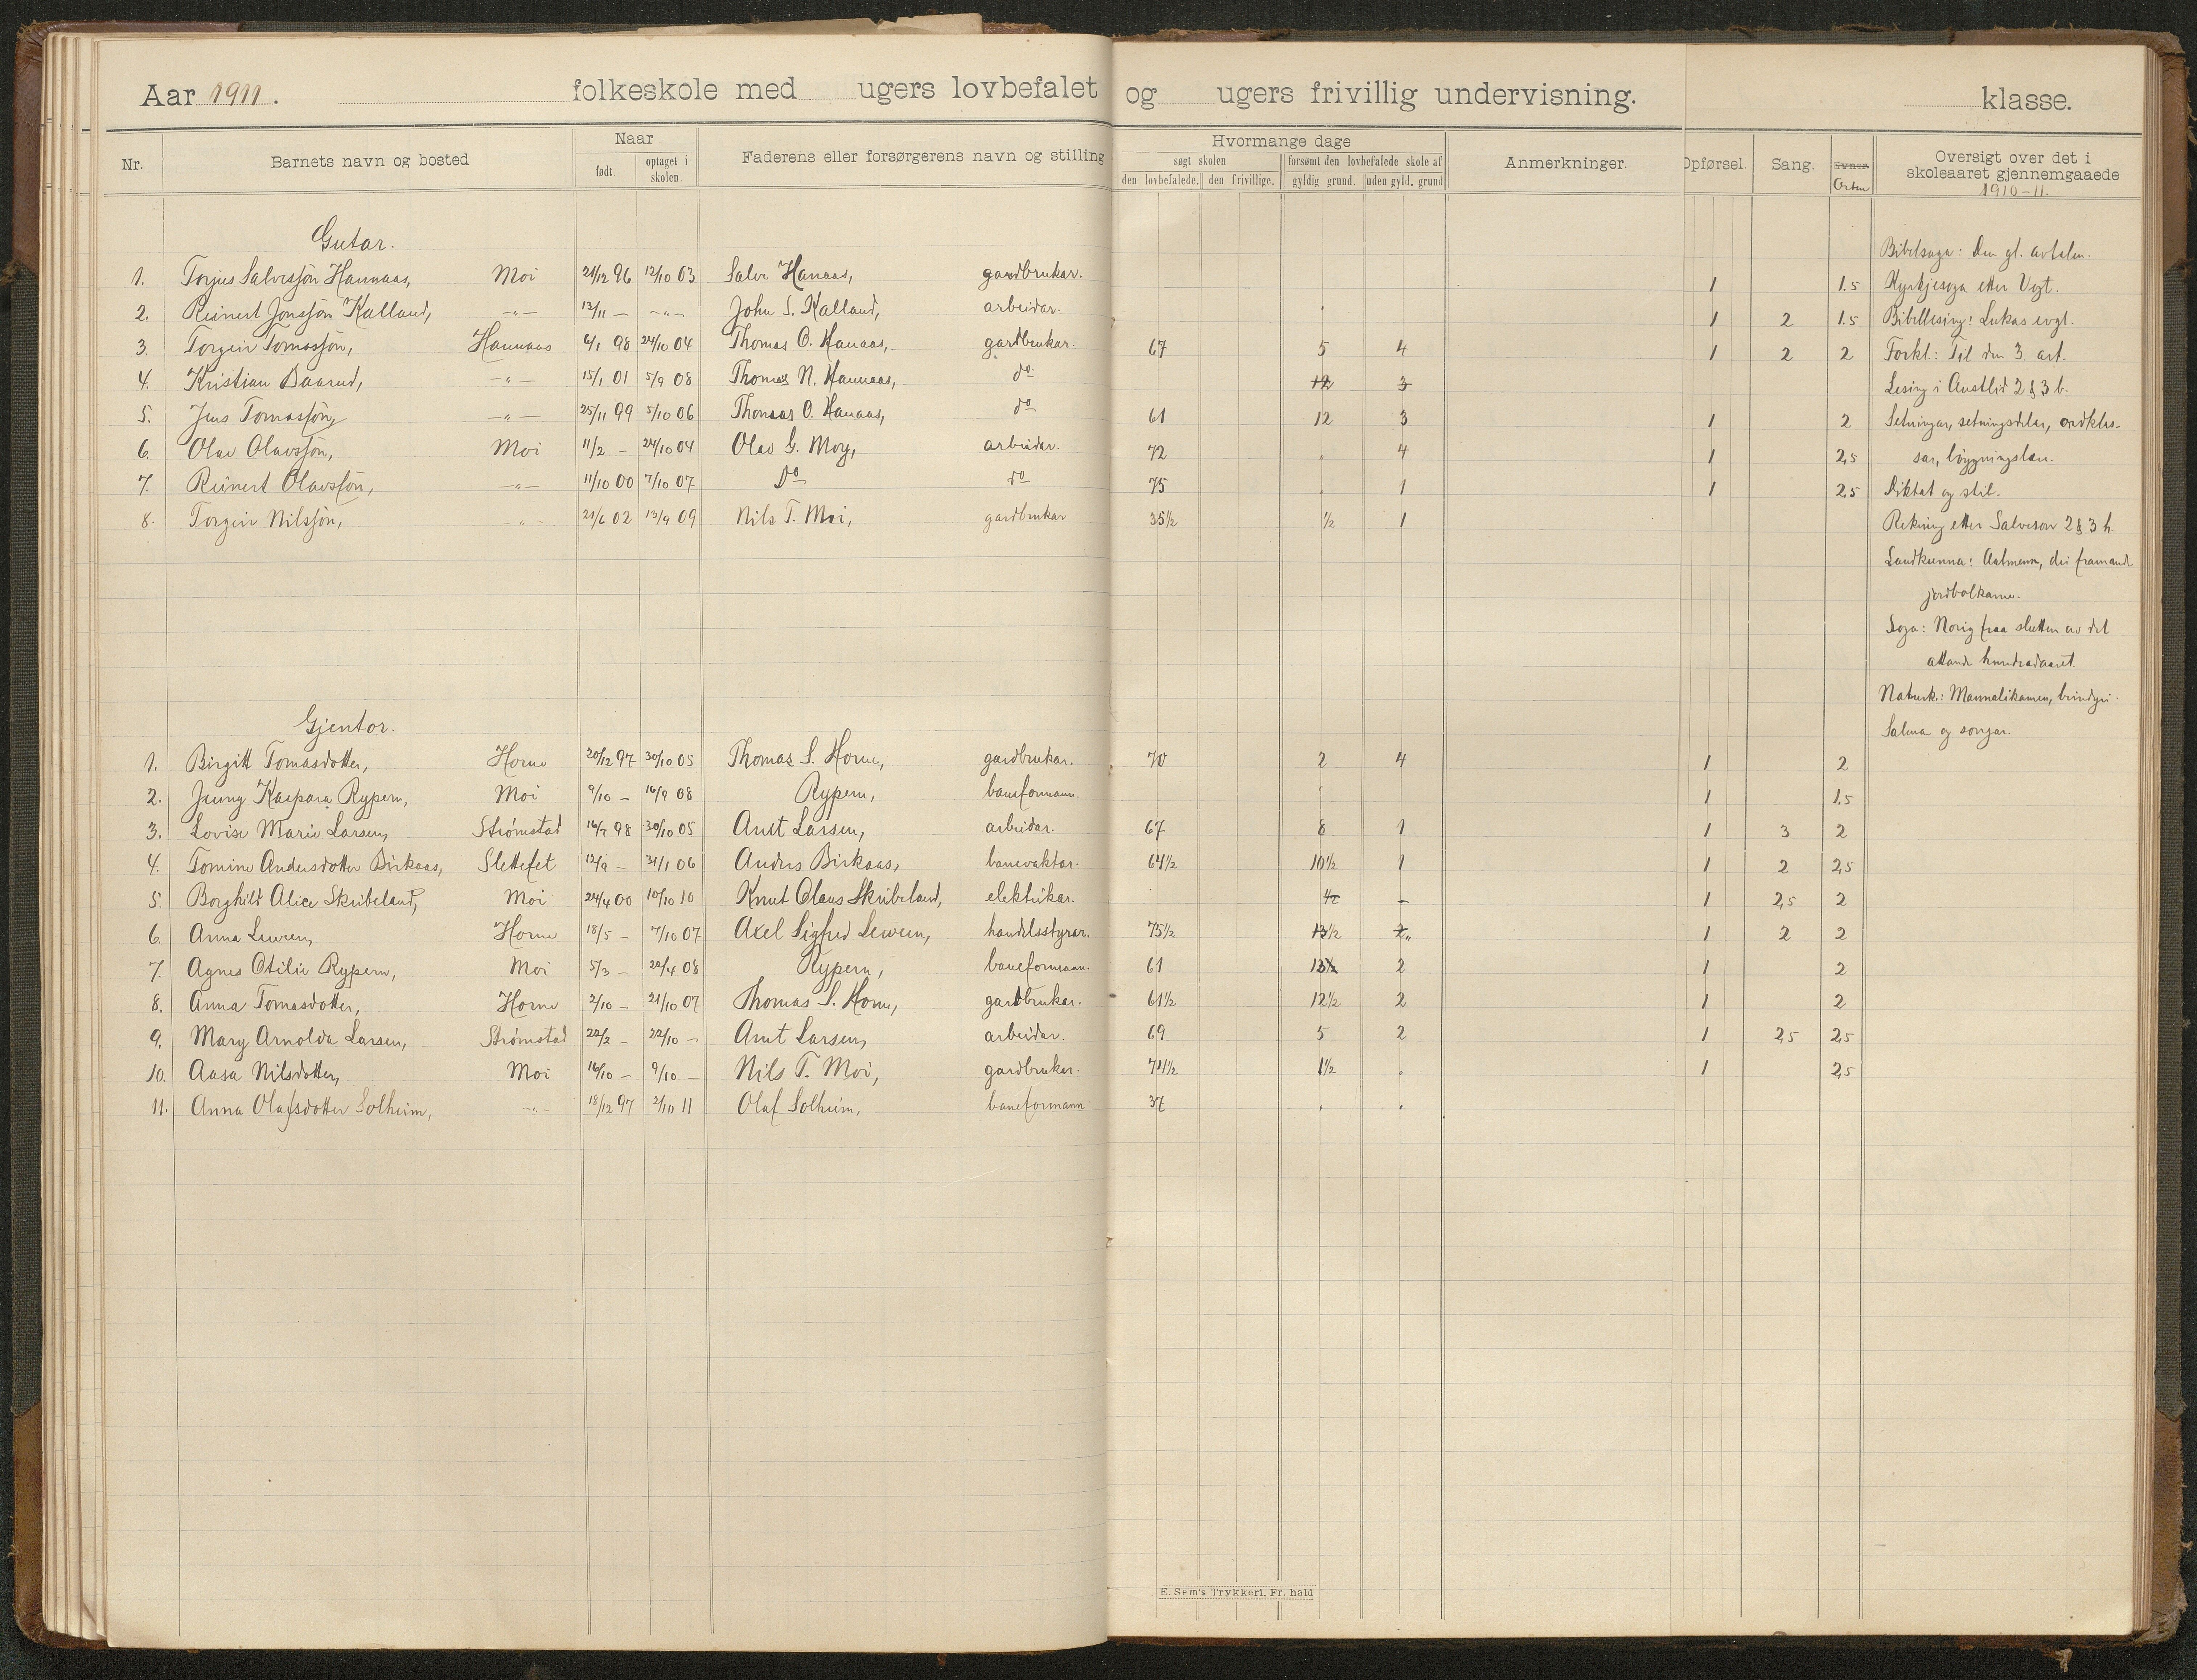 Aar 1911. folkeskole med ugers lovbefalet og ugers frivillig undervisning. klasse.
Nr. Barnets navn og bosted Naar født optaget i skolen. Faderens eller forsørgerens navn og stilling Hvormange dage søgt skolen den lovbefalede. den frivillige. forsømt den lovbefalede skole af gyldig grund. uden gyld. grund Anmerkninger. Opførsel. Sang. Evner Orden Oversigt over det i skoleaaret gjennemgaaede 1910-11.
Gutar.
1. Torjus Salvessøn Hannaas, Moi 21/12 96 12/10 03 Salve Hanaas, gardbrukar. 1 1.5
2. Reinert Jonssøn Kalland, -"- 13/11 - -"- John S. Kalland, arbeidar. 1 2 1.5
3. Torgeir Tomassøn, Hannaas 6/1 98 24/10 04 Thomas O. Hanaas, gardbrukar. 67 5 4 1 2 2
4. Kristian Baarud, -"- 15/1 01 5/9 08 Thomas N. Hannaas, do 12 3
5. Jens Tomassøn, -"- 25/11 99 5/10 06 Thomas O. Hanaas, do 61 12 3 1 2
6. Olav Olavssøn, Moi 11/2 - 24/10 04 Olav G. Moy, arbeidar. 72 . 4 1 2,5
7. Reinert Olavssøn, -"- 11/10 00 7/10 07 Do do 75 . 1 1 2,5
8. Torgeir Nilssøn, -"- 21/6 02 13/9 09 Nils T. Moi, gardbrukar 35½ ½ 1
Gjentor.
1. Birgitt Tomasdotter, Horne 20/12 97 30/10 05 Thomas S. Horne, gardbrukar. 70 2 4 1 2
2. Jenny Kaspara Rypern, Moi 9/10 - 16/9 08 Rypern, baneformann. 1 1.5
3. Lovise Marie Larsen, Strømstad 16/7 98 30/10 05 Arnt Larsen, arbeidar. 67 8 1 1 3 2
4. Tomine Andersdotter Birkaas, Slettefet 12/9 - 31/1 06 Anders Birkaas, banevaktar. 64½ 10½ 1 1 2 2,5
5. Borghild Alice Skribeland, Moi 24/4 00 10/10 10 Knut Olaus Skribeland, elektrikar. - 1 2,5 2
6. Anna Lewren, Horne 18/5 - 7/10 07 Axel Sigfred Lewern, handelsstyrar. 75½ 13½ 2 1 2 2
7. Agnes Otilie Rypern, Moi 5/3 - 22/4 08 Rypern, baneformann. 61 13½ 2 1 2
8. Anna Tomasdotter, Horne 2/10 - 21/10 07 Thomas S. Horne, gardbrukar. 61½ 12½ 2 1 2
9. Mary Arnolda Larsen, Strømstad 22/2 - 22/10 - Arnt Larsen, arbeidar. 69 5 2 1 2,5 2,5
10. Aasa Nilsdotter, Moi 16/10 - 9/10 - Nils T. Moi, gardbrukar. 74½ 1½ . 1 2,5
11. Anna Olafsdotter Solheim, -"- 18/12 97 2/10 11 Olaf Solheim, baneformann 37 . .
Bibelsoga: Den gl. avtalen.
Kyrkjesoga etter Vogt.
Bibellesing: Lukas evgl.
Forkl.: Til den 3. art.
Lesing i Austlid 2 & 3 b.
Setningar, setningsdelar, ordklas-
sar, bøygningslære.
Diktat og stil.
Rekning etter Salveson 2 & 3 h.
Landkunna: Aalmenn, dei framande
jordbolkarne.
Soga: Norig fraa slutten av det
attande hundradaaret.
Naturk.: Mannalikamen, beindyri.
Salma og songar.
E. Sem's Trykkeri, Fr. hald